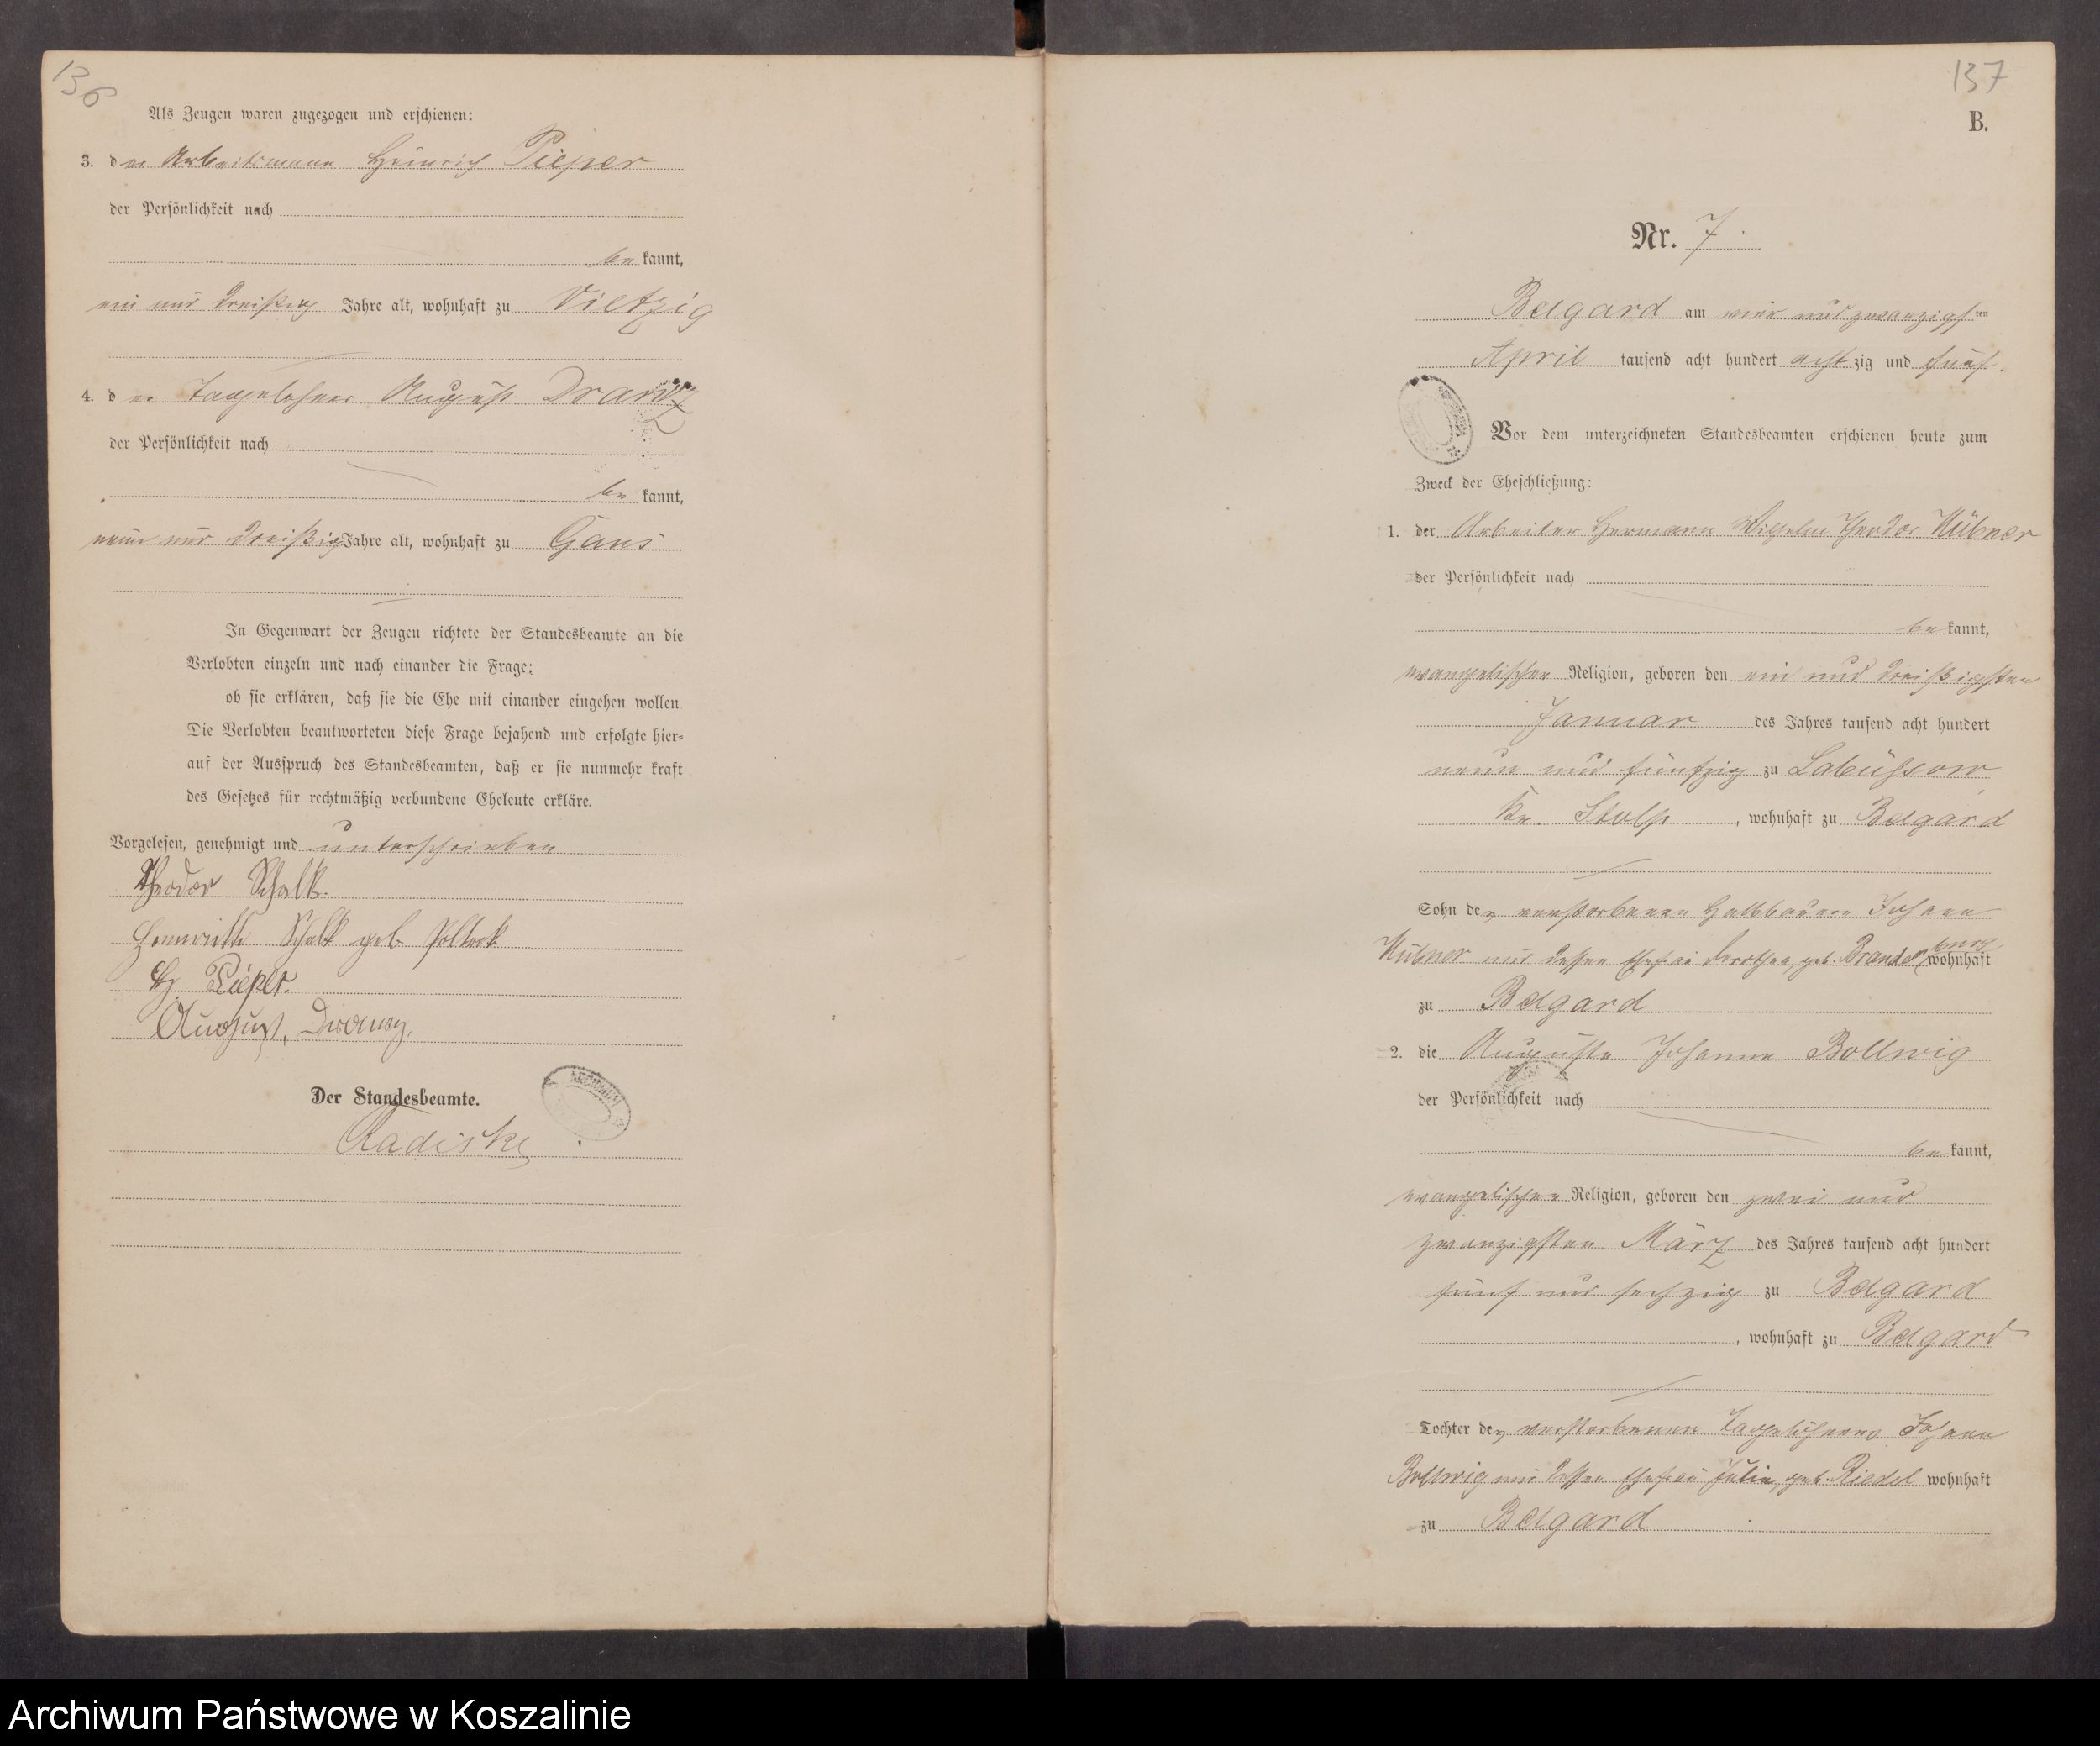 136
Als Zeugen waren zugezogen und erschienen:
3. der Arbeitsmann Heinrich Pieper
der Persönlichkeit nach
be kannt,
ein und dreißig Jahre alt, wohnhaft zu Vietzig
4. der Tagelöhner August Dranz
der Persönlichkeit nach
be kannt,
neun und dreißig Jahre alt, wohnhaft zu Gans
In Gegenwart der Zeugen richtete der Standesbeamte an die
Verlobten einzeln und nach einander die Frage:
ob sie erklären, daß sie die Ehe mit einander eingehen wollen
Die Verlobten beantworteten diese Frage bejahend und erfolgte hier-
auf der Ausspruch des Standesbeamten, daß er sie nunmehr kraft
des Gesetzes für rechtmäßig verbundene Eheleute erkläre.
Vorgelesen, genehmigt und unterschrieben
Theodor Schalk.
Henriette Schalk geb
H. Pieper.
August,
Der Standesbeamte.
Radiske
137
B.
Nr. 7.
Belgard am vier und zwanzigsten
April tausend acht hundert achtzig und fünf.
Vor dem unterzeichneten Standesbeamten erschienen heute zum
Zweck der Eheschließung:
1. der Arbeiter Hermann Wilhelm Theodor Kübner
der Persönlichkeit nach
be kannt,
evangelischer Religion, geboren den ein und dreißigsten
Januar des Jahres tausend acht hundert
neun und fünfzig zu Labüssow
Kr. Stolp, wohnhaft zu Belgard
Sohn des verstorbenen Halbbauern Johann
Kübner und dessen Ehefrau Dorothea, geb. Brandenburg wohnhaft
zu Belgard
2. die Auguste Johanne Bollwig
der Persönlichkeit nach
be kannt,
evangelischer Religion, geboren den zwei und
zwanzigsten März des Jahres tausend acht hundert
fünf und sechzig zu Belgard
, wohnhaft zu Belgard
Tochter des verstorbenen Tagelöhners Johann
Bollwig und dessen Ehefrau Julie, geb. Riedel wohnhaft
zu Belgard
Archiwum Państwowe w Koszalinie